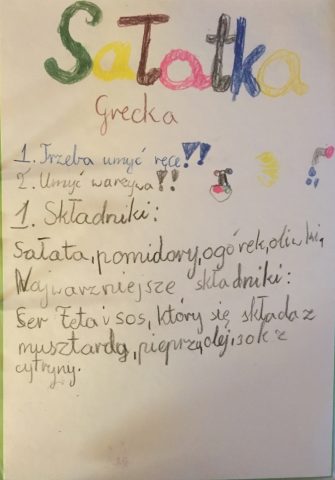 Sałatka
Grecka
1. Trzeba umyć ręce!!
2. Umyć warzywa!!
1. Składniki:
Sałata, pomidory, ogórek, oliwki,
Najwarzniejsze składniki:
Ser Feta i sos, który się składa z
musztardą, pieprzą, olej, sok z
cytryny.